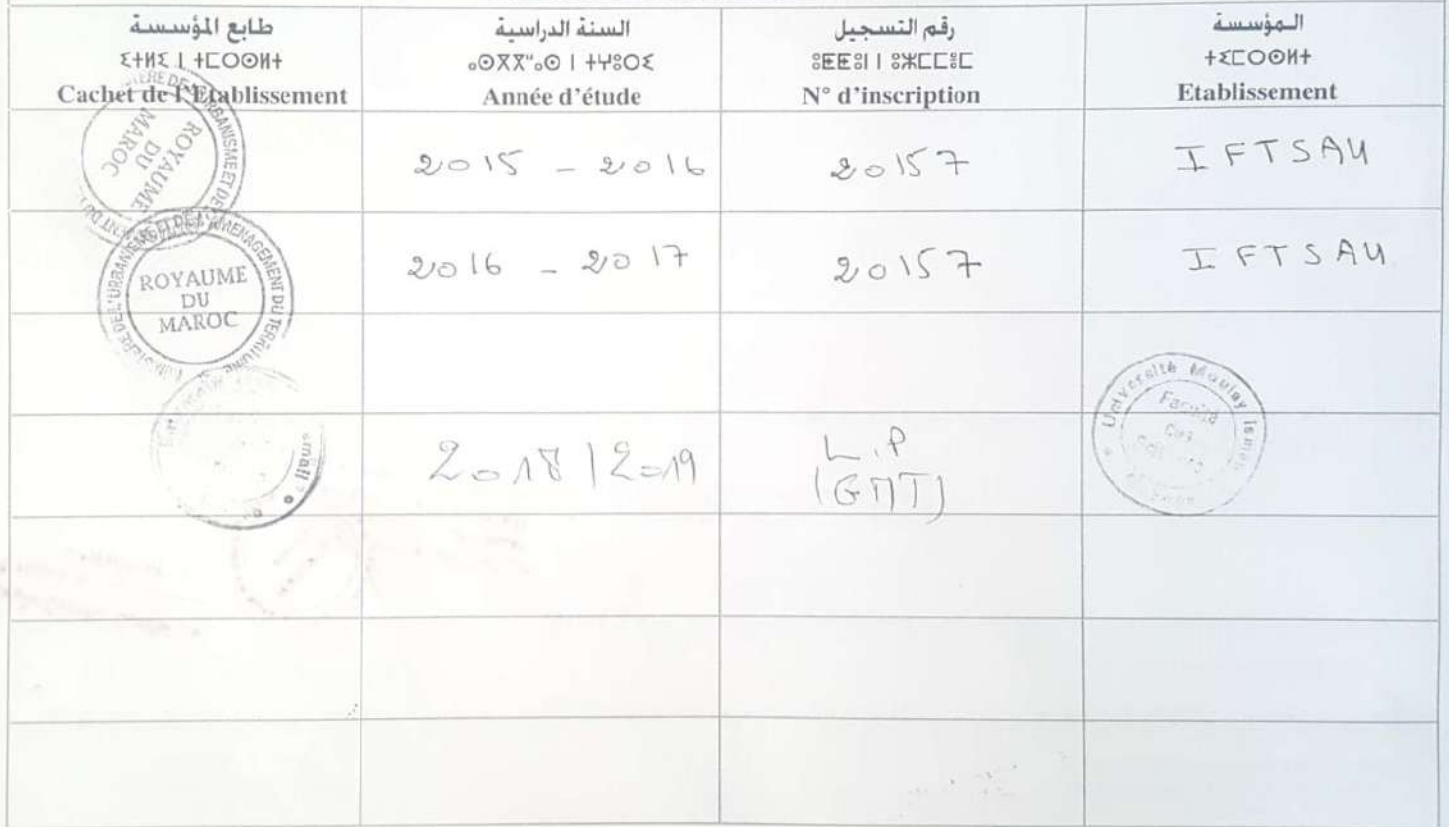 طابع المؤسسة
ⵉⵜⵍⵉ ⵏ ⵜⵎⵙⵙⵍⵜ
Cachet de l'Etablissement
السنة الدراسية
ⴰⵙⴳⴳⵯⴰⵙ ⵏ ⵜⵖⵓⵔⵉ
Année d'étude
رقم التسجيل
ⵓⵟⵟⵓⵏ ⵏ ⵓⵣⵎⵎⴻⵎ
N° d'inscription
المؤسسة
ⵜⵉⵎⵔⵙⵍⵜ
Etablissement
ROYAUME
DU
MAROC
2015 - 2016
20157
IFTSAU
DE L'URBANISME ET DE L'AMENAGEMENT DU TERRITOIRE
ROYAUME
DU
MAROC
2016 - 2017
20157
IFTSAU
2018 | 2019
L.P
(GMT)
Université Moulay Ismail
Faculté